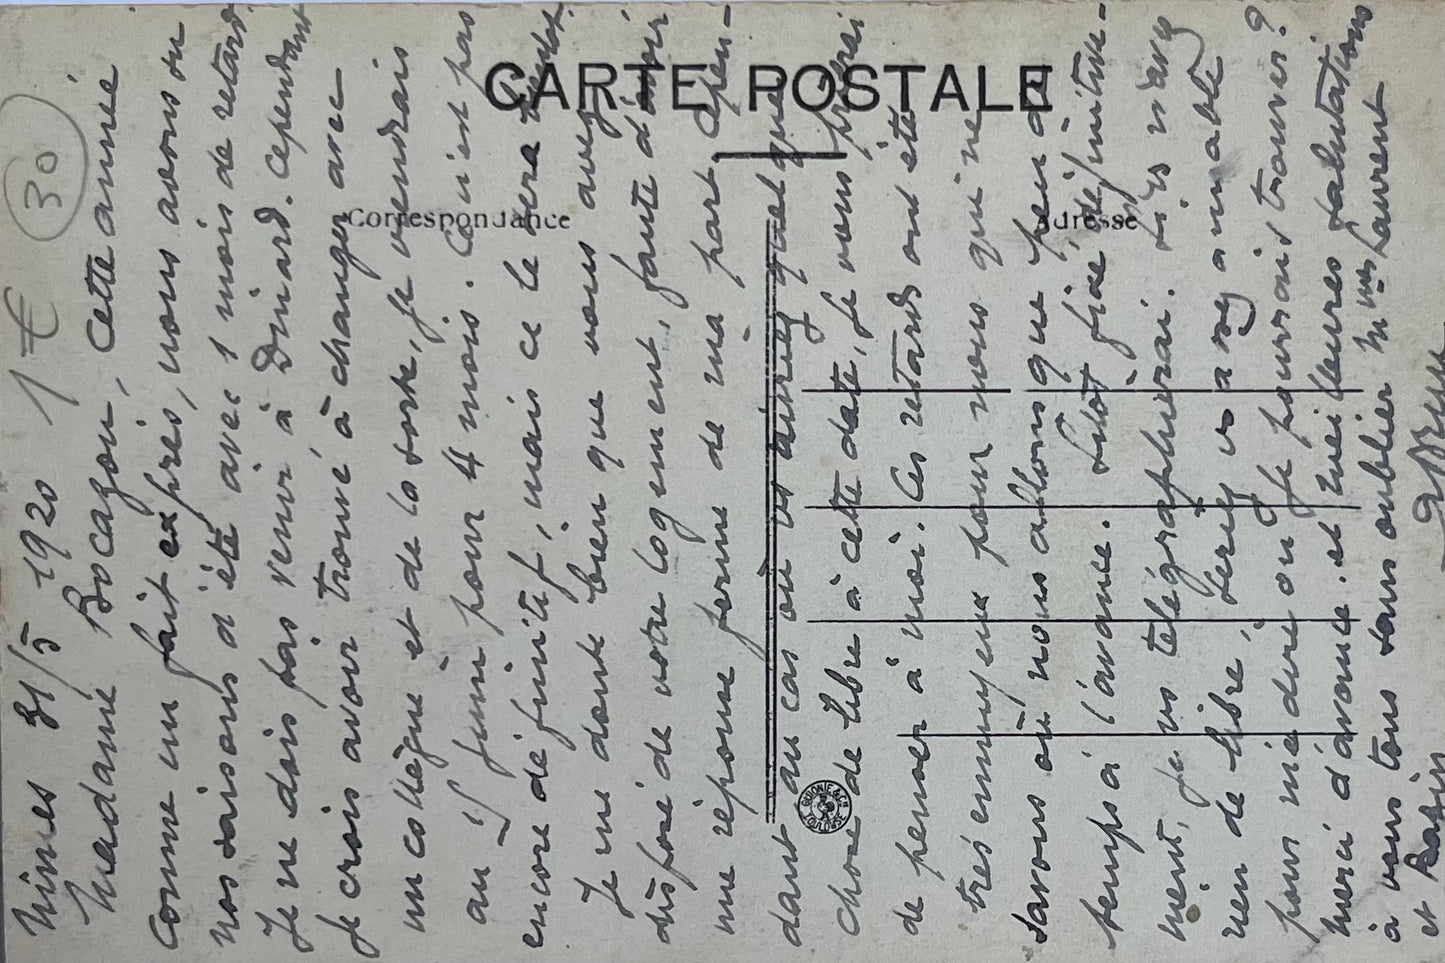 CARTE POSTALE
Correspondance
Adresse
GUIONIE & Cie TOULOUSE
30
1 €
Nimes 31/5 1920
Madame Bocazou, cette année
comme un fait exprès, nous avons vu
nos saisons d'été avec 1 mois de retard
Je ne dois pas venir à Dinard. Cependant
je crois avoir trouvé à changer avec
un collègue et de la sorte, je viendrais
au 15 juin pour 4 mois. Ce n'est pas
encore définitif, mais ce le sera
Je me doute bien que vous avez
disposé de votre logement, faute d'avoir
une réponse ferme de ma part. Cepen-
dant au cas où vs auriez quelque
chose de libre à cette date, je vous prierai
de penser à moi. Ces retards ont été
très ennuyeux pour nous qui ne
savons où nous allons que peu de
temps à l'avance. Sitôt fixé, définitive-
ment, je vs télégraphierai. Si vs n'avez
rien de libre, serez vs assez aimable
pour me dire où je pourrais trouver?
Merci d'avance. et meilleures salutations
à vous tous sans oublier Mme Laurent
et